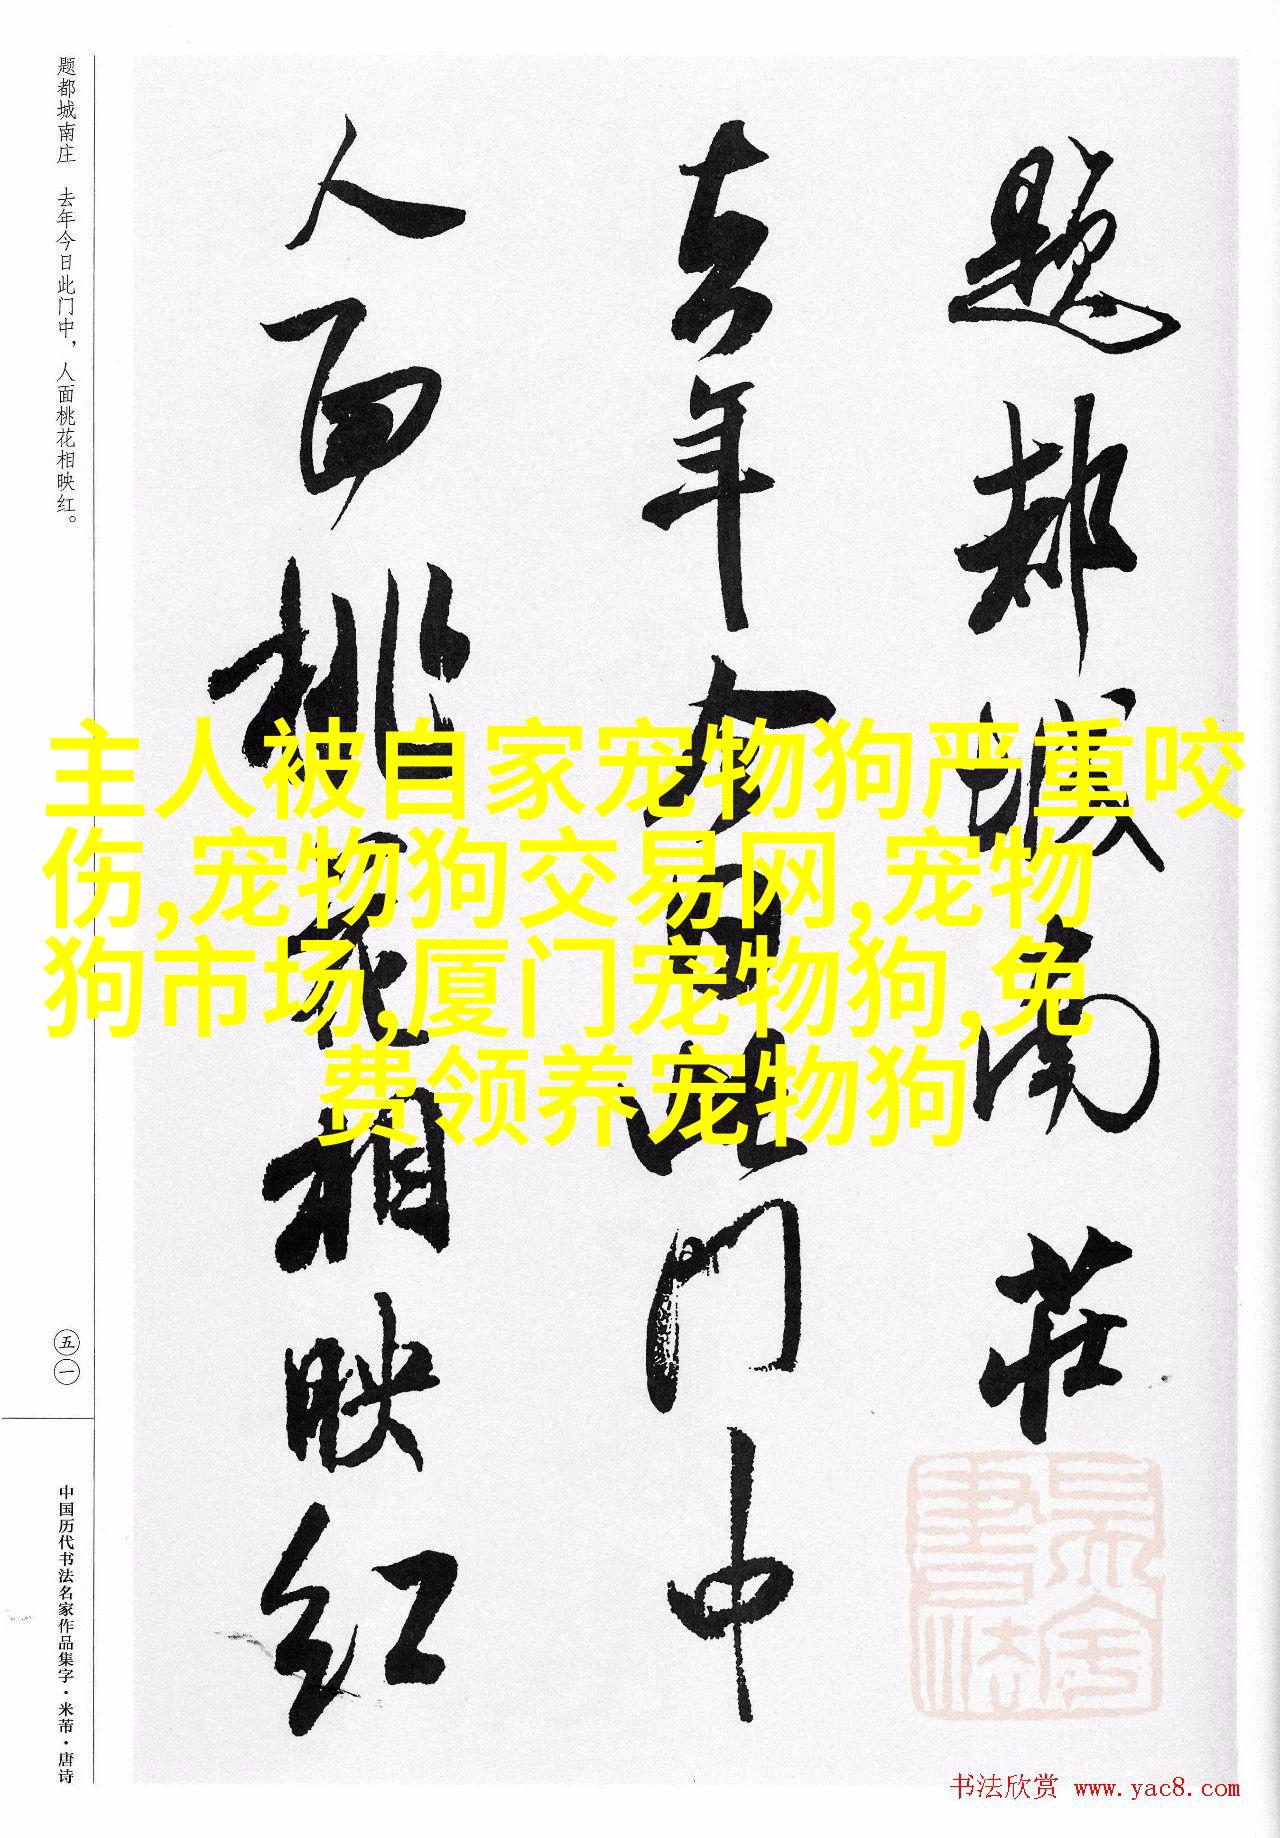 题都城南庄　去年今日此门中，人面桃花相映红。
題都城南莊
去年今日此门中
人面桃花相映红
主人被自家宠物狗严重咬
伤,宠物狗交易网,宠物
狗市场,厦门宠物狗,免
费领养宠物狗
五一
中国历代书法名家作品集字·米芾·唐诗
书法欣赏 www.yac8.com